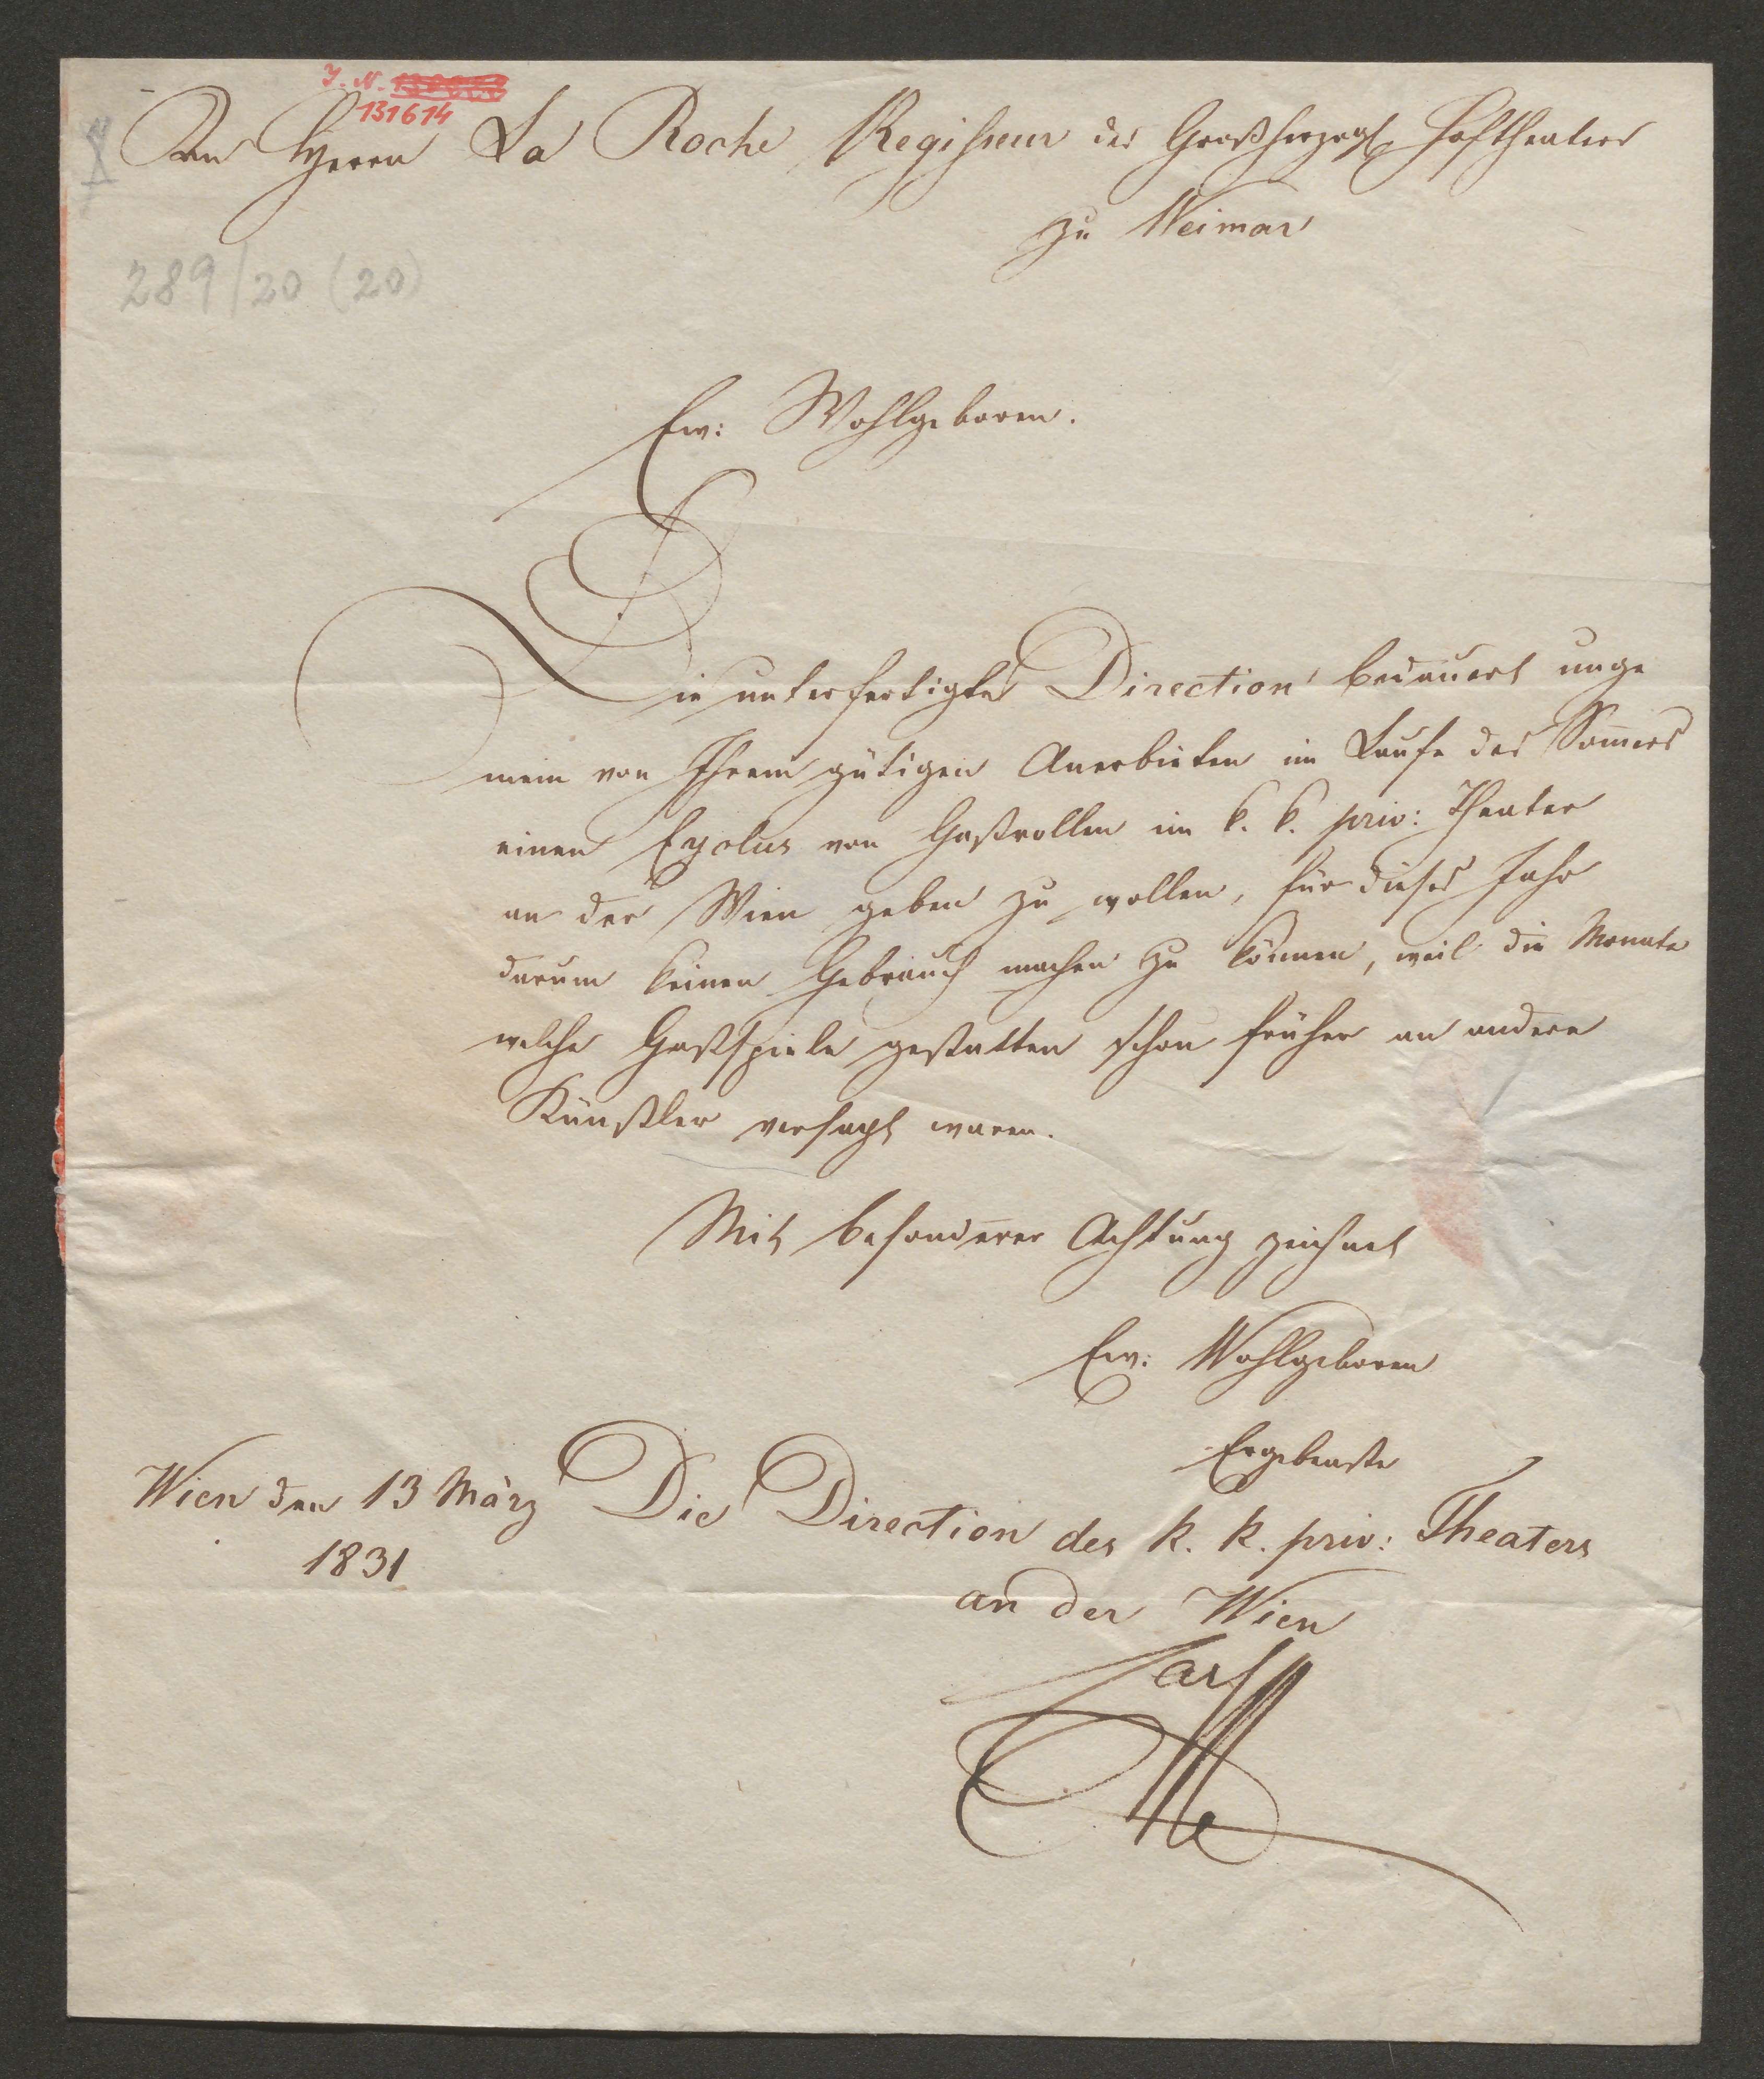 J. N.
131614
An Herrn La Roche Regisseur des Großherzogl. Hoftheaters
zu Weimar
289/20 (20)
Ew: Wohlgeboren.
Die unterfertigte Direction bedauert unge
mein von Ihrem gütigen Anerbieten im Laufe des Som̄ers
einen Cyclus von Gastrollen im k. k. priv: Theater
an der Wien geben zu wollen, für dieses Jahr
darum keinen Gebrauch machen zu können, weil die Monate
welche Gastspiele gestatten schon früher an andere
Künstler versagt waren.
Mit besonderer Achtung zeichnet
Ew: Wohlgeboren
Ergebenste
Wien den 13 März Die Direction des k. k. priv: Theaters
1831
an der Wien
Carl